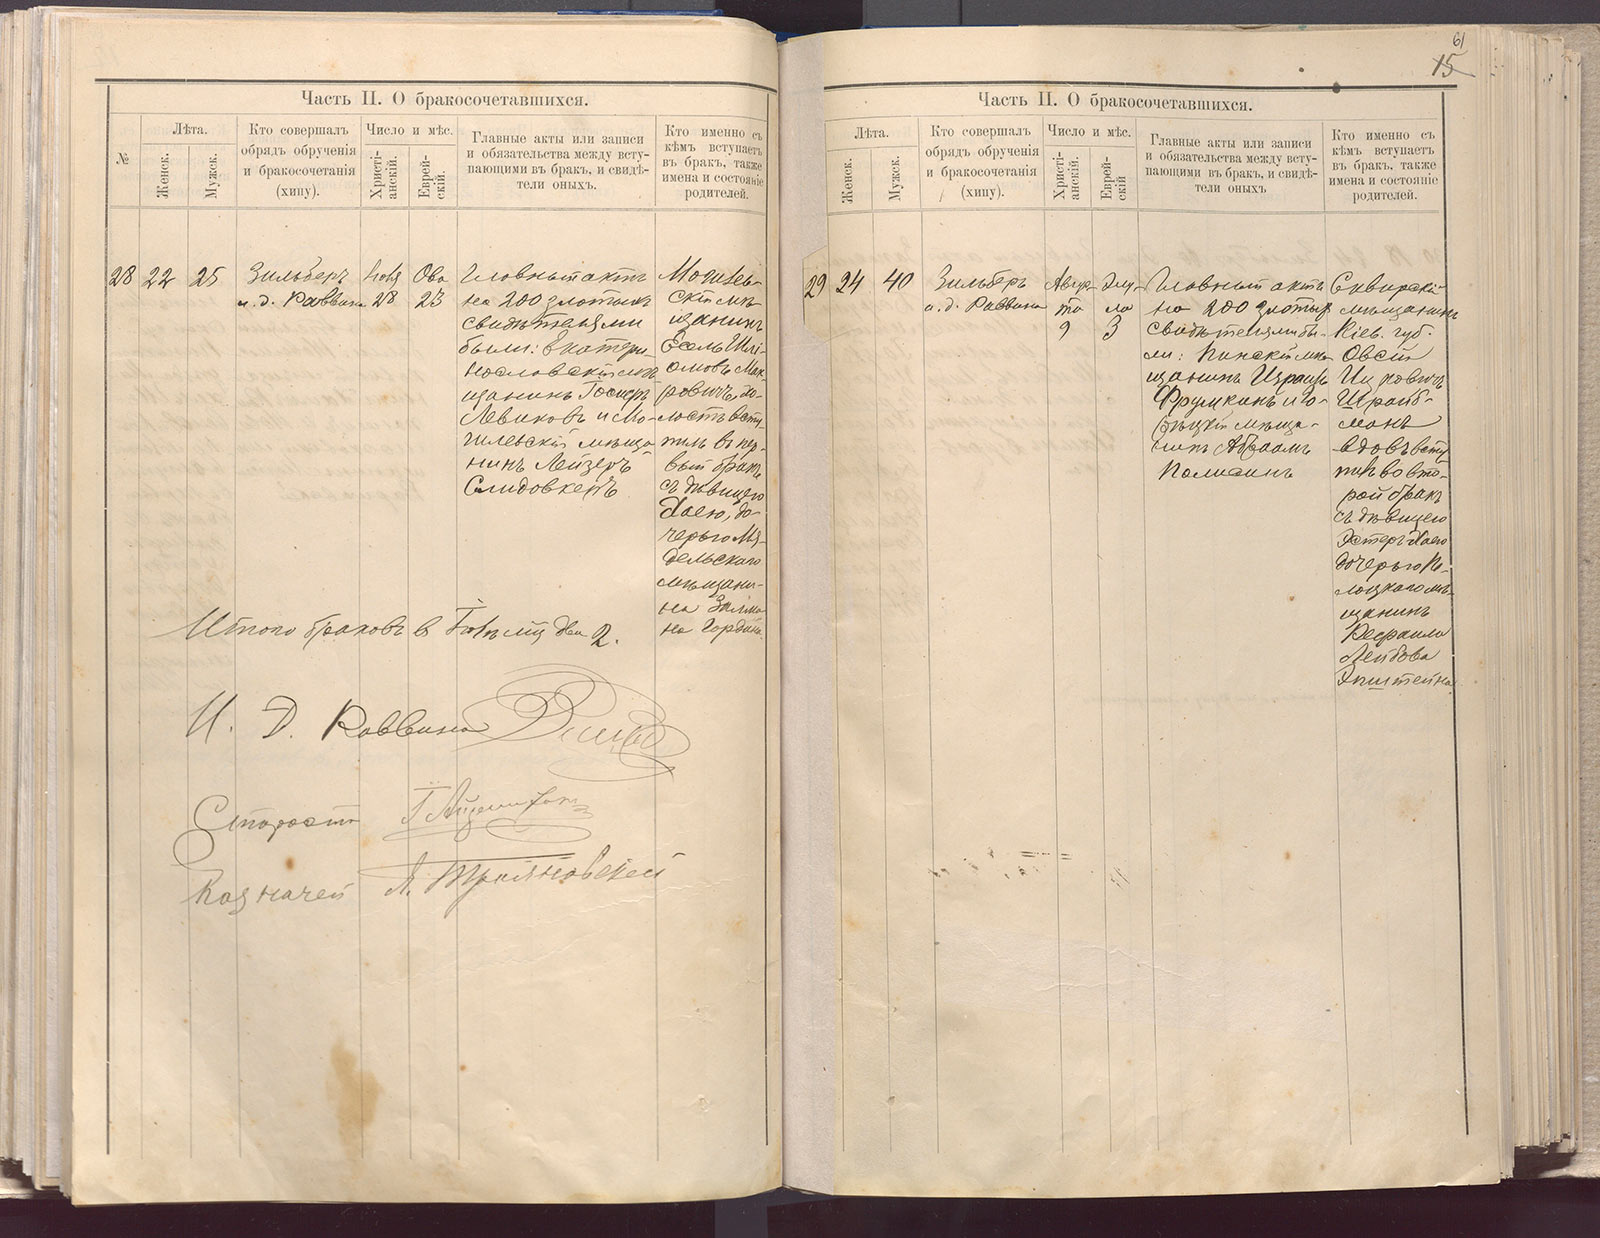 Часть II. О бракосочетавшихся.
№
Лѣта.
Женск.
Мужск.
Кто совершалъ
обрядъ обрученія
и бракосочетанія
(хипу).
Число и мѣс.
Христі-
анскій.
Еврей-
скій.
Главные акты или записи
и обязательства между всту-
пающими въ бракъ, и свидѣ-
тели оныхъ.
Кто именно съ
кѣмъ вступаетъ
въ бракъ, также
имена и состояніе
родителей.
28
22
25
Зильберъ
и. д. Раввина
Іюля
28
Ова
23
Главный актъ
на 200 злотыхъ
свидѣтелями
были: Екатери-
нославскій мѣ-
щанинъ
Левиковъ и Мо-
гилевскій мѣща
нинъ Лейзеръ
Могилев-
скій мѣ-
щанинъ
Іосель
вступ
илъ въ пер-
вый бракъ
съ дѣвицею
Хаею, до-
черью Мя-
дельскаго
мѣщани-
на Залма
на Гордина.
Итого браковъ в Іюлѣ мцѣ два 2.
И. Д. Раввина
Староста
Казначей
61
15
Часть II. О бракосочетавшихся.
Лѣта.
Женск.
Мужск.
Кто совершалъ
обрядъ обрученія
и бракосочетанія
(хипу).
Число и мѣс.
Христі-
анскій.
Еврей-
скій
Главные акты или записи
и обязательства между всту-
пающими въ бракъ, и свидѣ-
тели оныхъ
Кто именно съ
кѣмъ вступаетъ
въ бракъ, также
имена и состояніе
родителей.
29
24
40
Зильберъ
и. д. Раввина
Авгу-
ста
9
Элу-
ла
3
Главный актъ
на 200 злотых
свидѣтелями бы-
ли: Пинскій мѣ-
щанинъ Израиль
Фрумкинъ и
мѣща-
нинъ Абрамъ
Сквирскій
мѣщанинъ
Кіев. губ.
Овсей
Ицковичъ
Шрайб-
манъ
вдовъ всту
пилъ во вто-
рой бракъ
съ дѣвицею
Эстеръ Хаею
дочерью По-
лоцкаго мѣ-
щанинъ
Рефаила
Лейбова
Эпштейна.